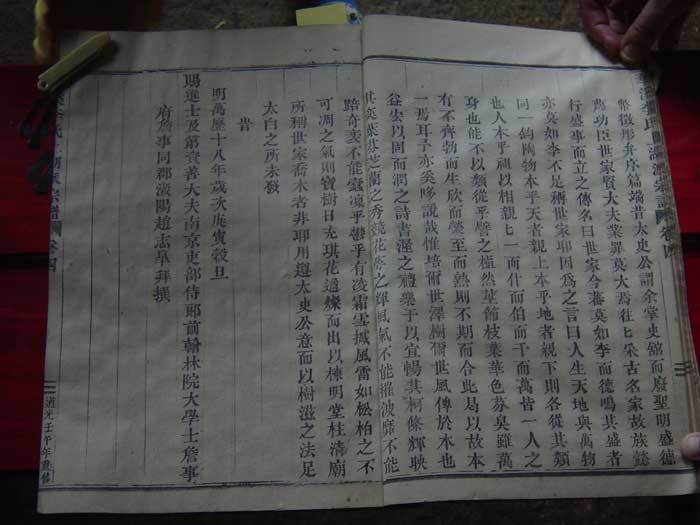 幣徵彤弁序篇端昔太史公謂余掌史舘而廢聖明盛德
舊功臣世家賢大夫業罪莫大焉往匕采古名家故族懿
行盛事而立之傳名曰世家今蕃莫如李而德鳴其盛者
亦莫如李不足稱世家耶因爲之言曰人生天地與萬物
同一鈞陶物本乎天者親上本乎地者親下則各從其類
也人本乎祖以相親匕一而什而伯而千而萬皆一人之
身也能不以類從乎譬之植然莖節枝葉華色芬臭雖萬
有不齊勃而生欣而榮至而熱則不期而合此曷以故本
一焉耳予亦奚哆說哉惟培爾世澤樹爾世風傳於本也
谷宏以固而潤之詩書渥之禮樂于以宜暢其柯條輝映
其英葉芬芝蘭之秀競花萼之輝風氣不能摧波靡不能
踣奇衺不能蠹凜乎鬱乎有凌霜雪撼風雷如松柏之不
可凋之氣則寶樹日充琪花逍燦而出以棟明堂柱清廟
所稱世家喬木者非耶用遵太史公意而以樹滋之法足
太白之所未發
昔
明萬歷十八年歲次庚寅穀旦
賜進士及第資善大夫南京吏部侍郎前翰林院大學士詹事
府詹事同郡瀔陽趙志皋拜撰
卷四
道光壬午年重修